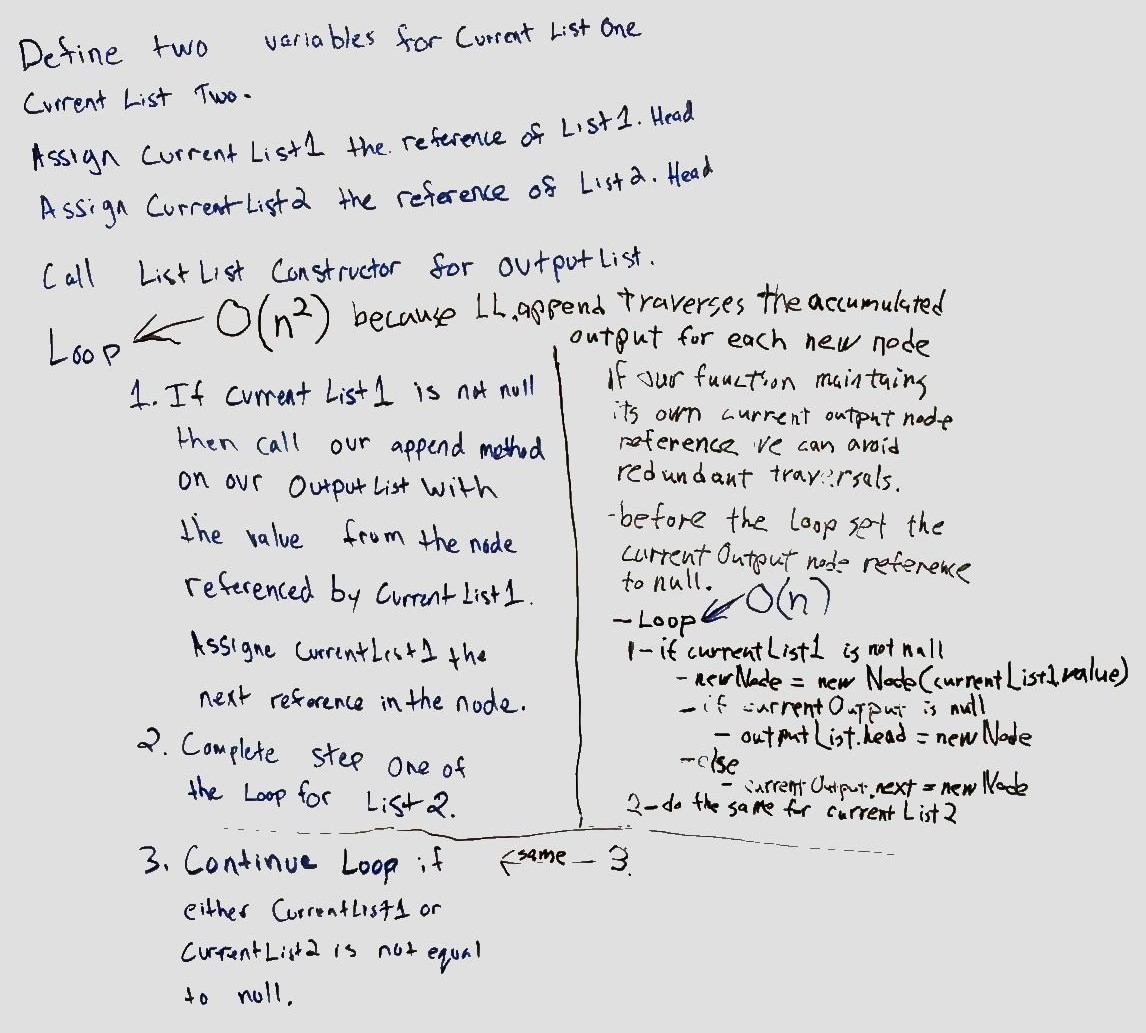 Define two variables for Current List One
Current List Two.
Assign Current List1 the reference of List1. Head
Assign Current List2 the reference of List2. Head
Call List List Constructor for output List.
Loop ← O(n²) because LL.append traverses the accumulated
output for each new node
1. If current List1 is not null
then call our append method
on our Output List with
the value from the node
referenced by Current List1.
Assigne CurrentList1 the
next reference in the node.
2. Complete step one of
the Loop for List2.
if our function maintains
its own current output node
reference we can avoid
redundant traversals.
-before the loop set the
current Output node reference
to null.
- Loop ← O(n)
1- if currentList1 is not null
- newNode = new Node(currentList1.value)
- if currentOutput is null
- outputList.head = newNode
-else
- currentOutput.next = newNode
2- do the same for currentList2
3. Continue Loop if ← same - 3.
either CurrentList1 or
CurrentList2 is not equal
to null.